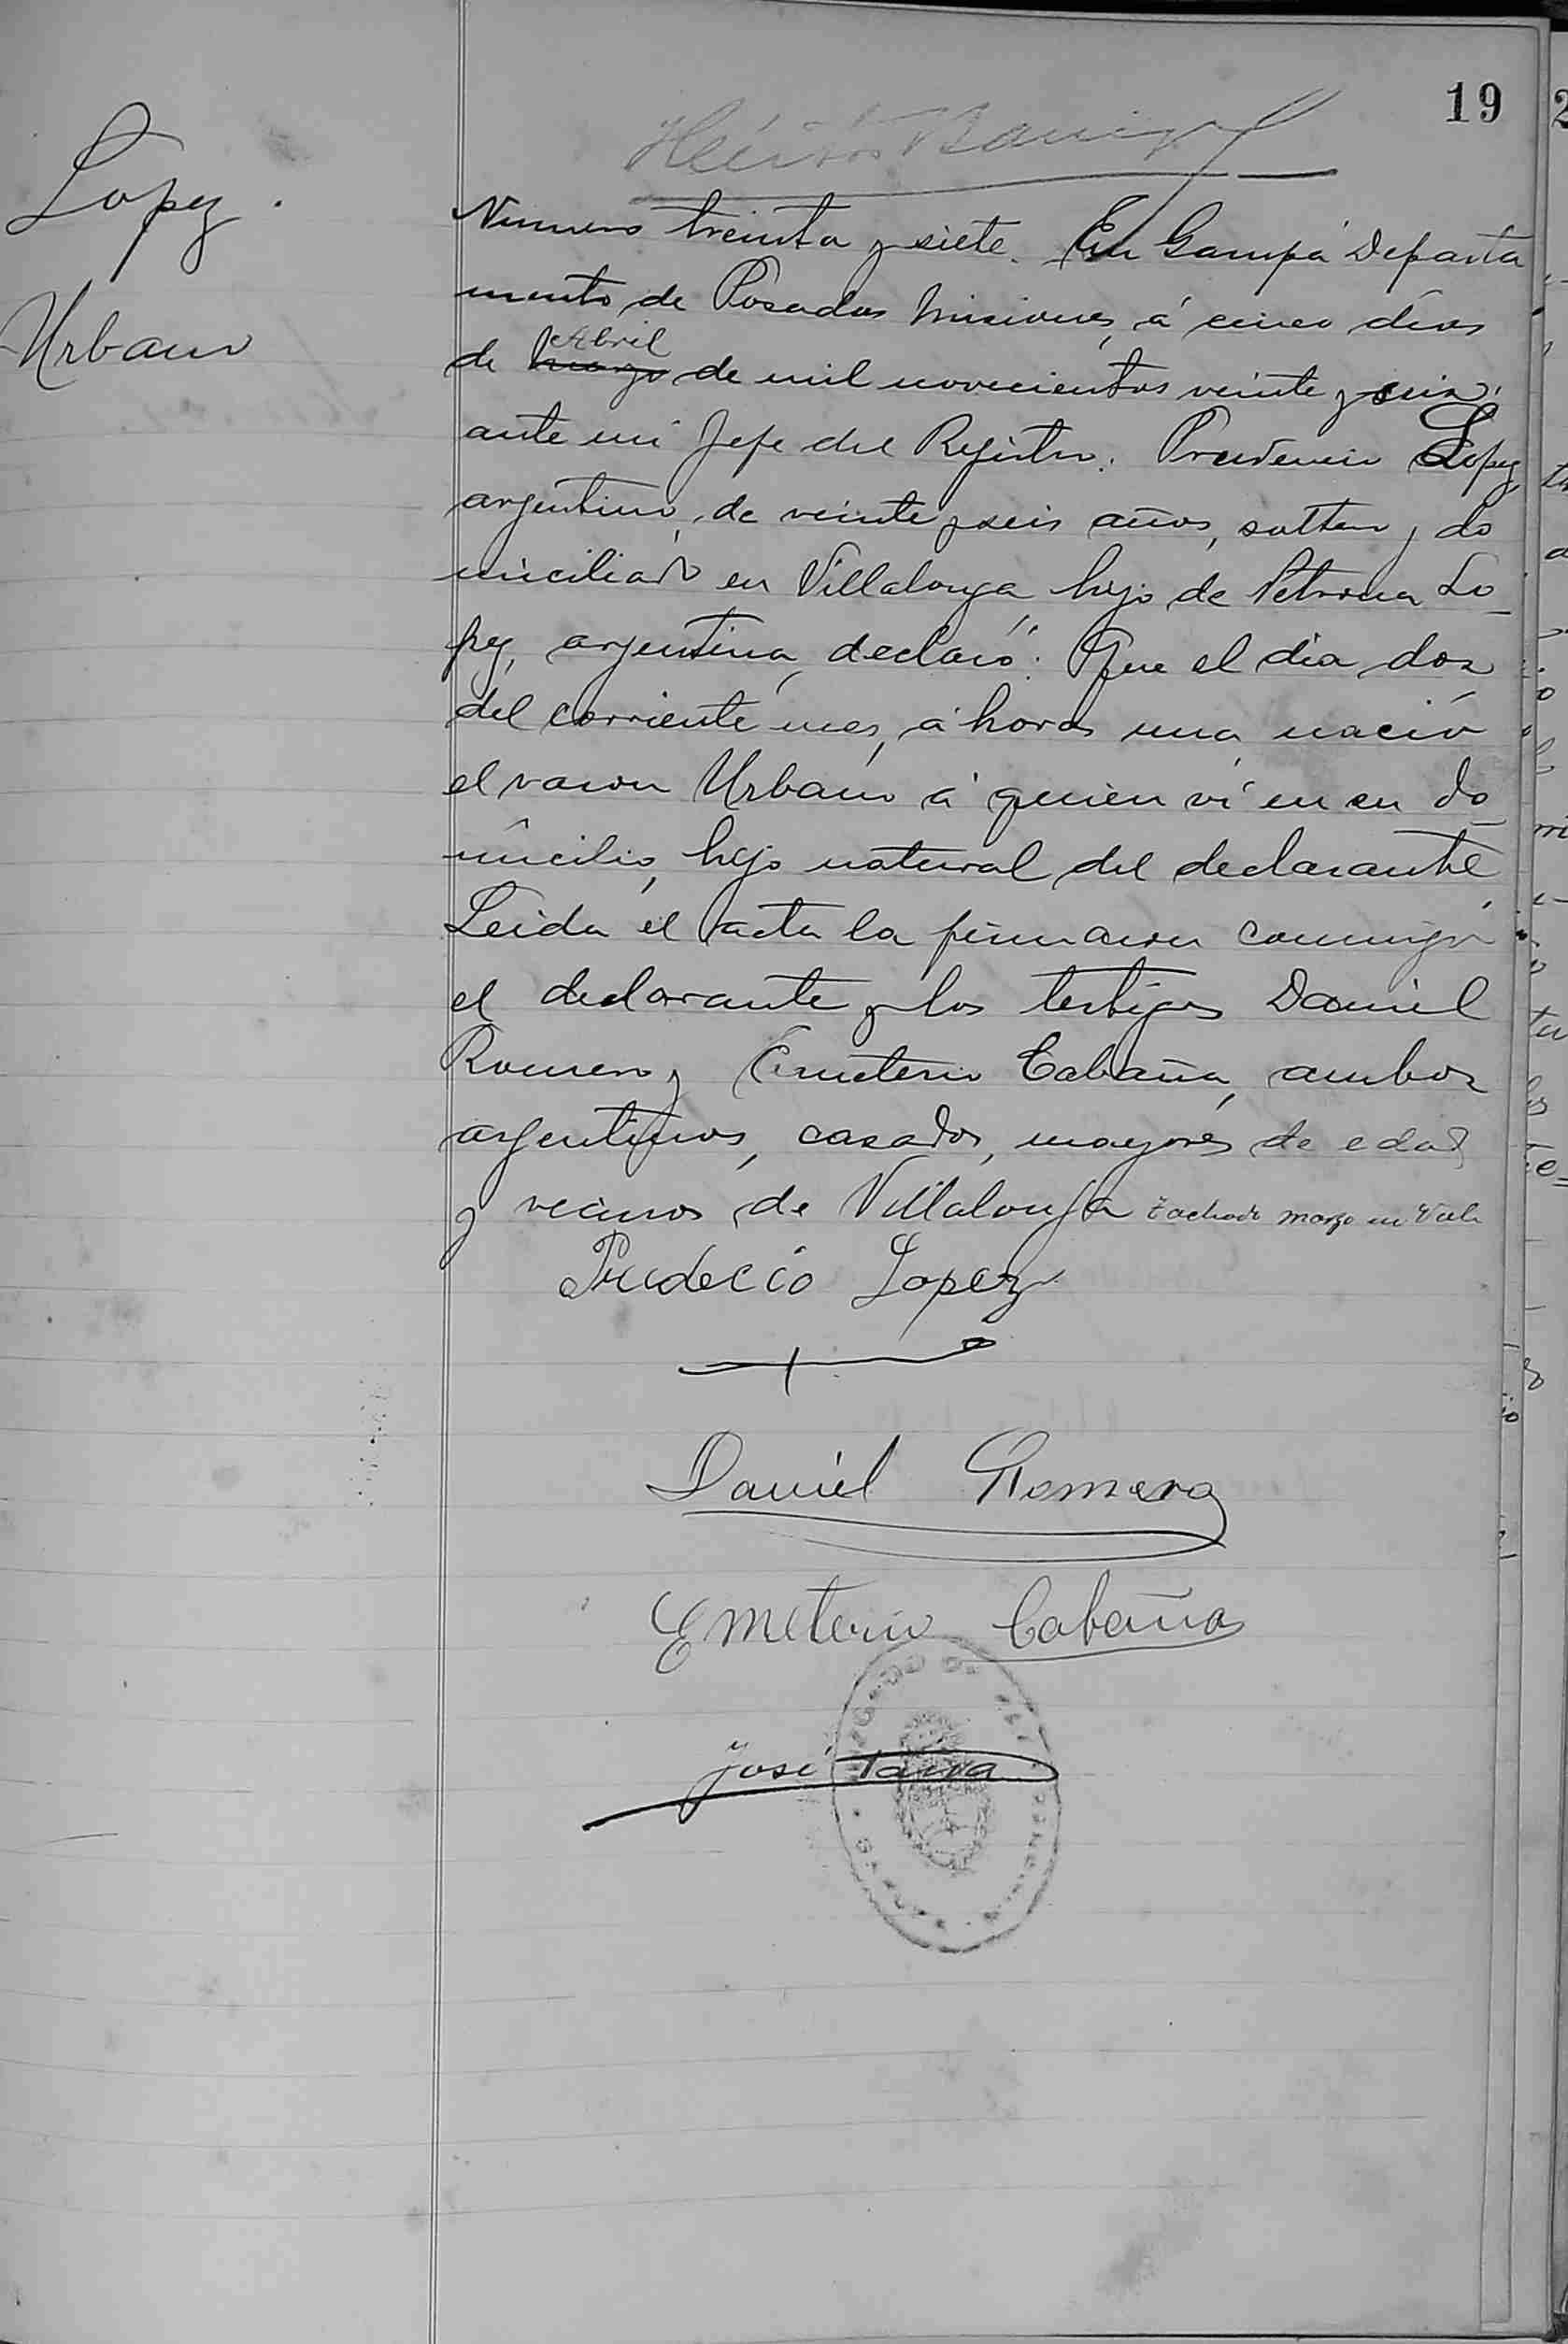 19
Lopez
Urbano
Numero treinta y siete. En Garupá Departa
mento de Posadas Misiones, á cinco dias
Abril
de marzo de mil novecientos veinte y seis,
ante mi Jefe del Registro. Prudencio Lopez,
argentino, de veinte y seis años, soltero, do
miciliado en Villalonga, hijo de Petrona Lo_
pez, argentina, declaró: Que el dia dos
del corriente mes, á horas una, nació
el varon Urbano á quien ví en su do_
micilio, hijo natural del declarante.
Leida el acta la firmaron conmigo
el declarante y los testigos Daniel
Romero y Emeterio Cabaña, ambos
argentinos, casados, mayores de edad
y vecinos de Villalonga tachado marzo
Prudecio Lopez
Daniel Romero
Emeterio Cabaña
José